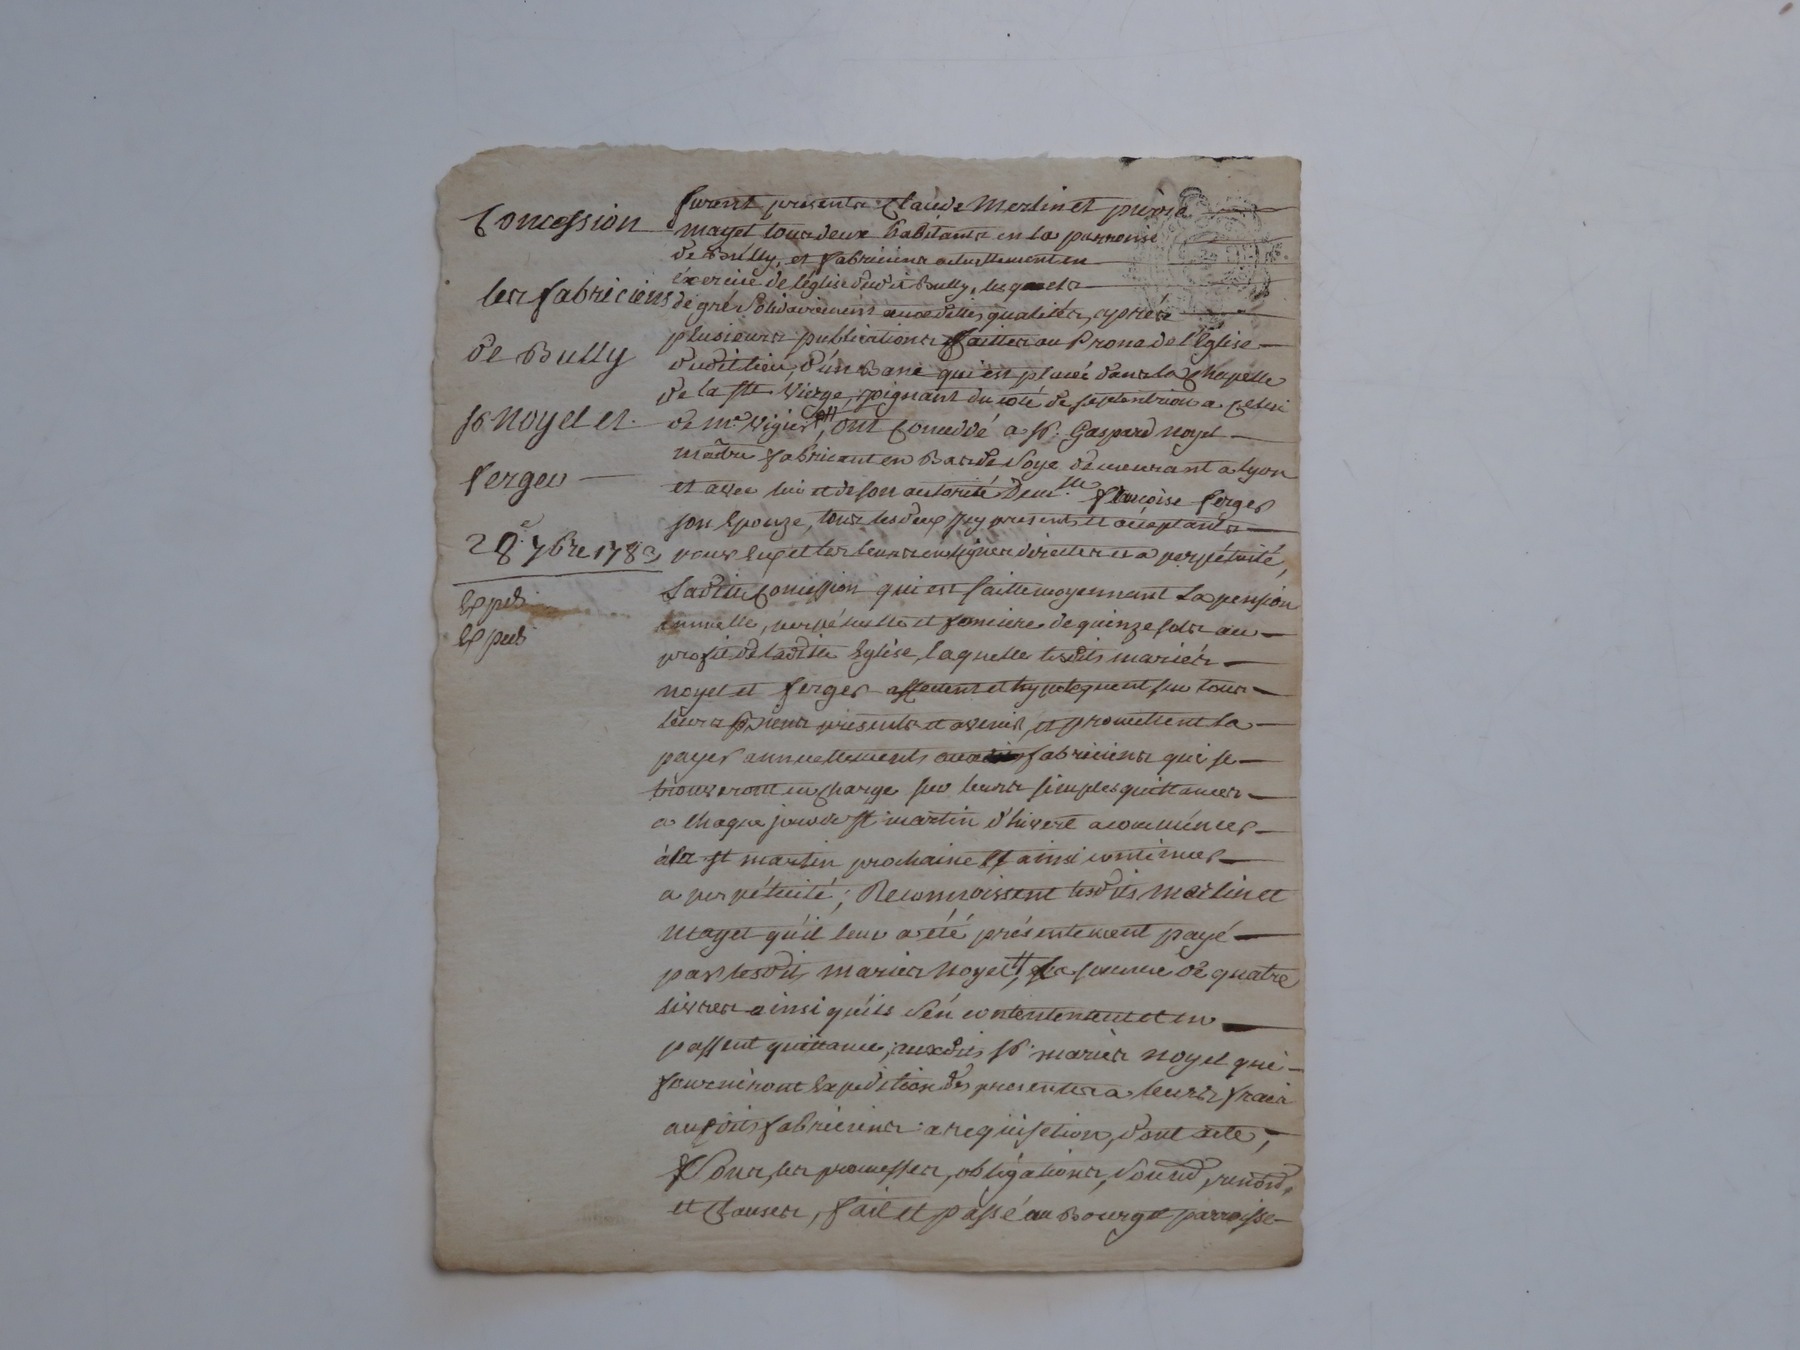 Concession
les fabriciens
de Bully
Sr Noyel et
ferger
28e 7bre 1783
Expedi
Expedi
furent présents Claude Merlin et pierre
mayet tous deux habitants en la parroisse
de Bully, et fabriciens actuellement en
éxercice de l'église dudit Bully, lesquels
de gré solidairement auxdittes qualités, après
plusieurs publications faittes au Prone de l'Église
dudit lieu, d'un Banc qui est placé dans la Chapelle
de la Ste Vierge, joignant du coté de septentrion a Celui
de Me Vigier, ont Concédé a Sr Gaspard Noyel
maître fabricant en Bas de Soye demeurant a Lyon
et avec lui et de son autorité Demlle françoise ferger
son Epouze, tous les deux icy présents et acceptants
pour Eux et les leurs en lignes directes et a perpétuité,
Ladite Concession qui est faitte moyennant La pension
annuelle, perpétuelle et fonciere de quinze sols au
profit de ladite Eglise, laquelle lesdits mariés
noyel et ferger affectent et hypotequent sur tous
leurs Biens présents et avenir, et promettent la
payer annuellement fabriciens qui se
trouveront en charge sur leurs simples quittances
a chaque jour de St martin d'hivert a commencer
à la St martin prochaine et ainsi continuer
a perpétuité; Reconnoissent lesdits Merlin et
Mayet qu'il leur a été présentement payé
par lesdits mariés Noyel, la somme de quatre
livres ainsi qu'ils s'en contentent et en
passent quittance, auxdits Sr mariés noyel qui
fourniront Expédition des présentes a leurs frais
auxdits fabriciens a requisition, dont acte,
Sous les promesses, obligations, soumd, renond,
et Clauses, fait et passé au Bourg et parroisse